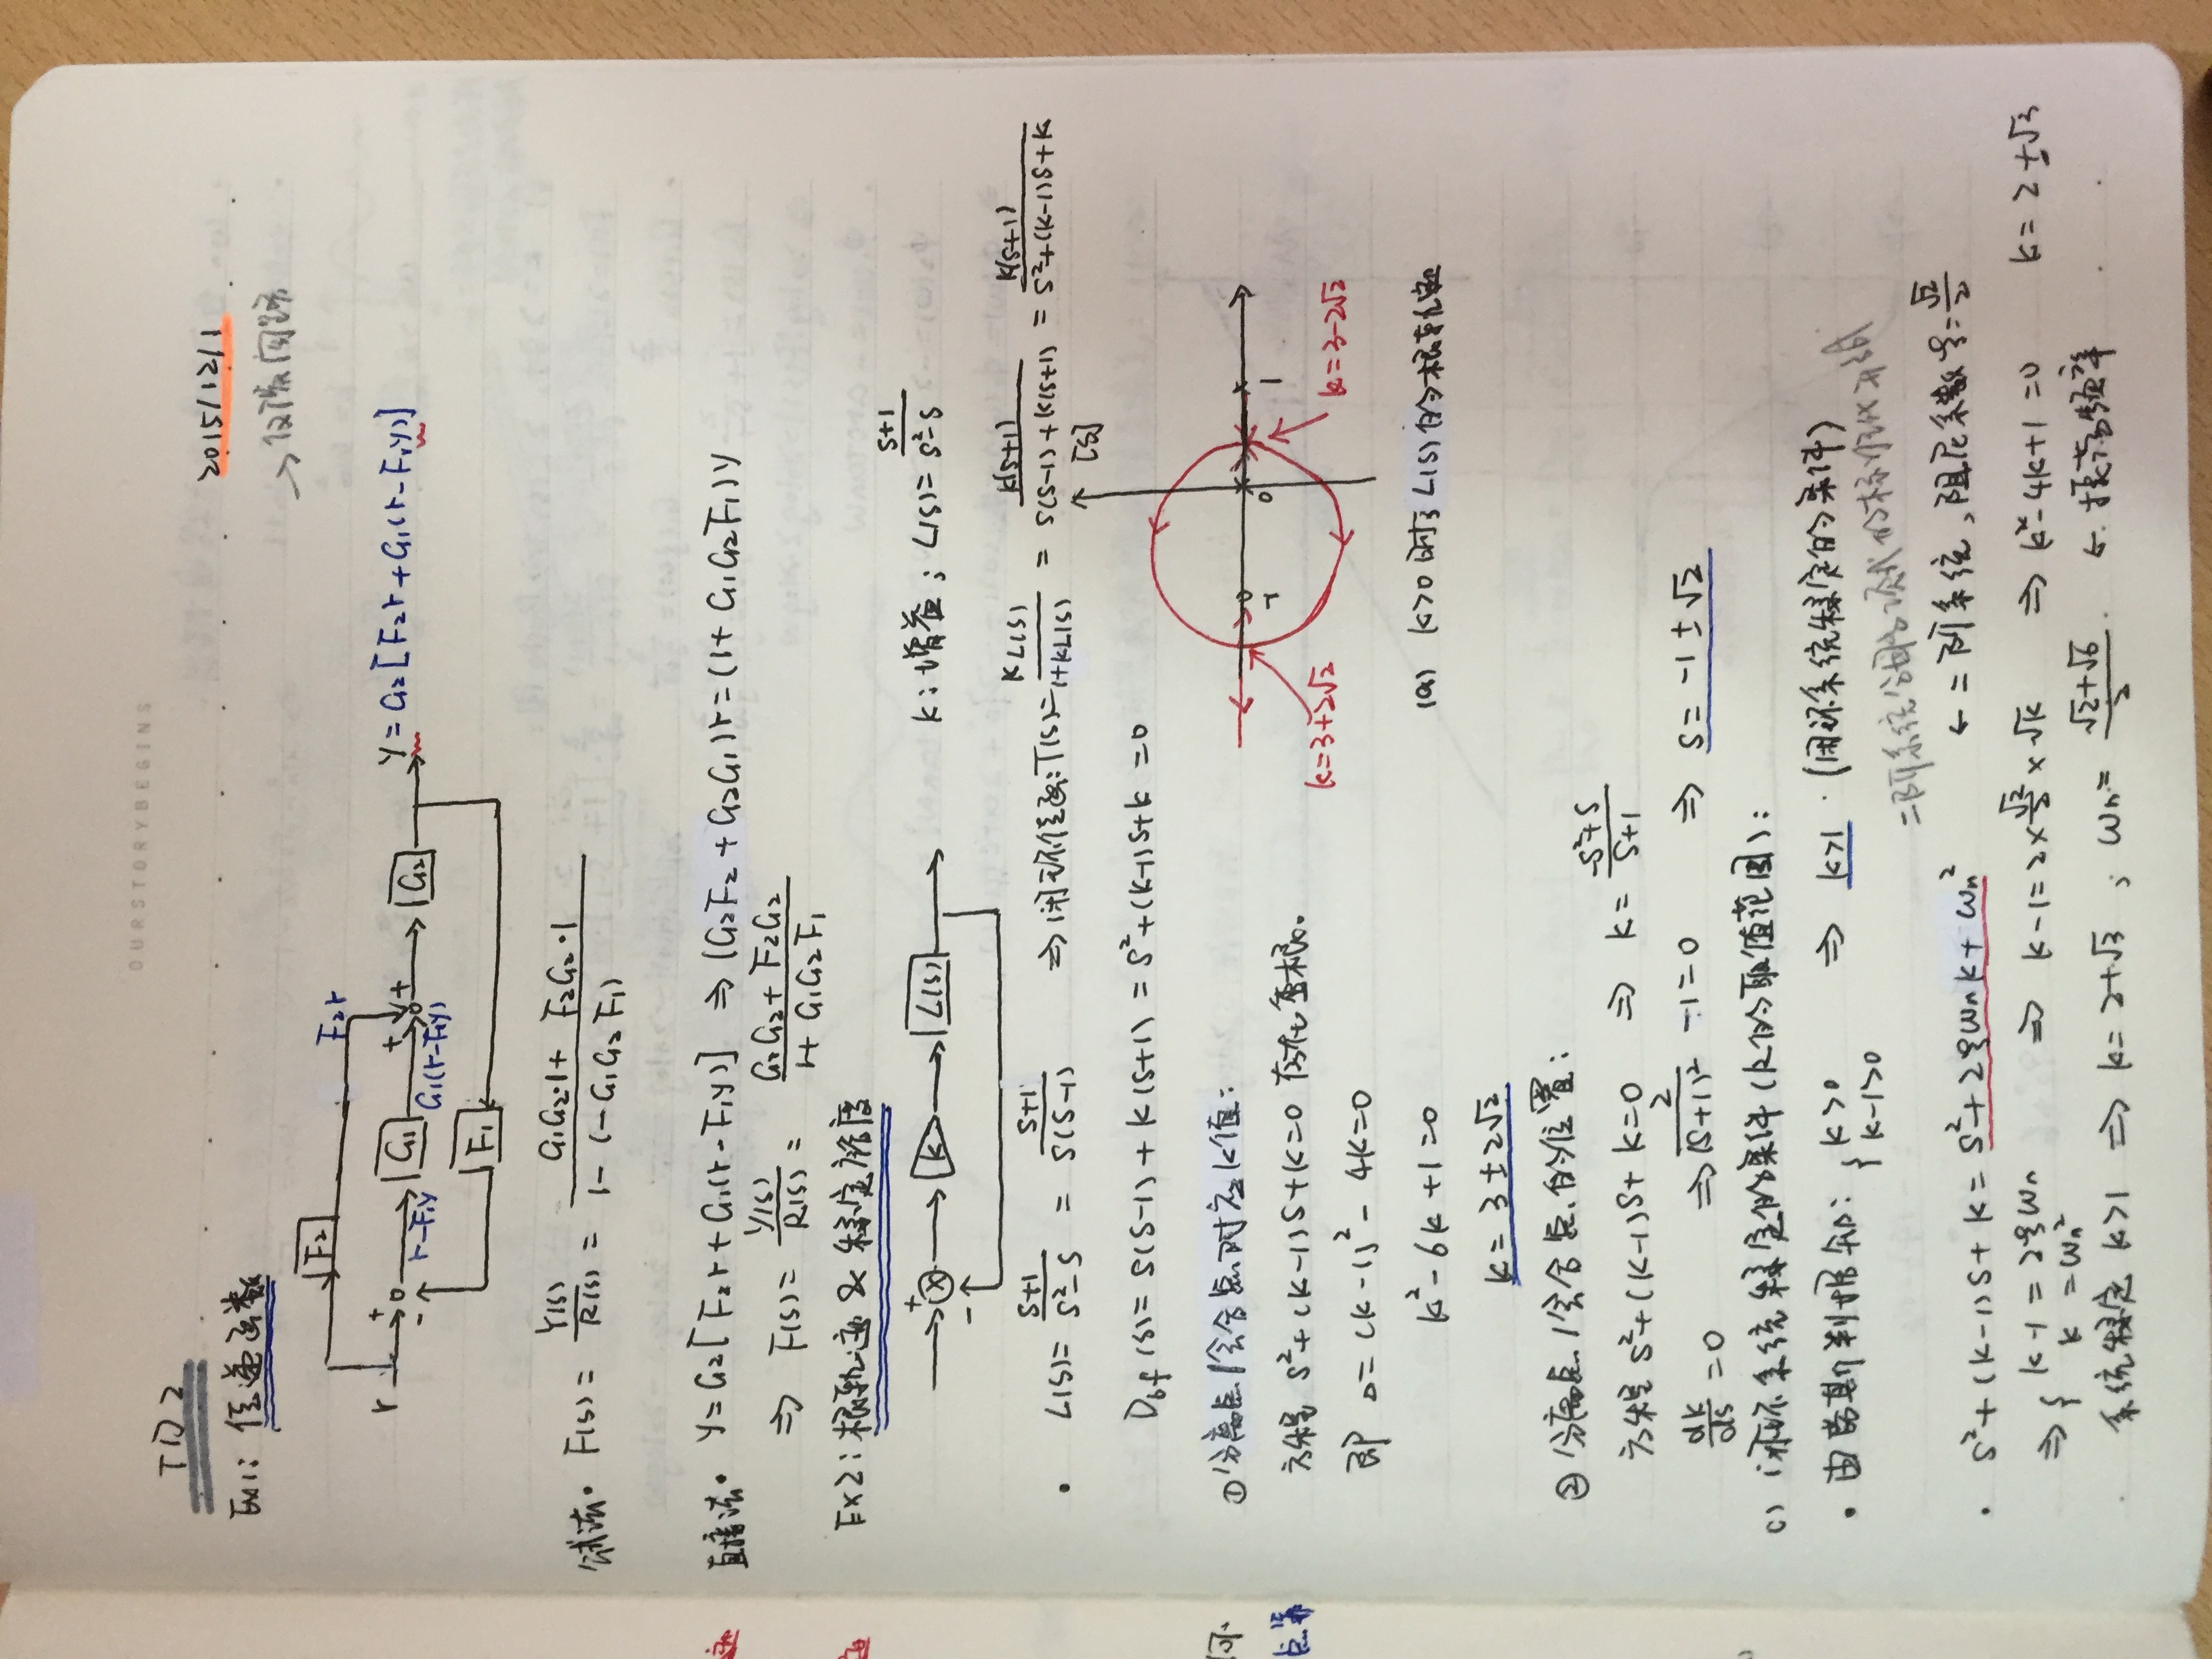 OURSTORYBEGINS
TD 2
2015/12/1
Ex1: 传递函数
→ 仅供阅读
F2
F2r
r
+
-
r-F1y
G1
G1(r-F1y)
+
+
G2
y = G2[F2r + G1(r-F1y)]
F1
公式法· F(s) = Y(s)/R(s) = (G1G2·1 + F2G2·1)/(1-(-G1G2F1))
直接法· y = G2[F2r + G1(r-F1y)] ⇒ (G2F2 + G2G1)r = (1+G1G2F1)y
⇒ F(s) = Y(s)/R(s) = (G2G2 + F2G2)/(1+G1G2F1)
Ex2: 根轨迹 & 稳定裕度
+
-
K
L(s)
K: 增益; L(s) = (s+1)/(s²-s)
· L(s) = (s+1)/(s²-s) = (s+1)/(s(s-1)) ⇒ 闭环传函: T(s) = KL(s)/(1+KL(s)) = K(s+1)/(s(s-1)+K(s+1)) = K(s+1)/(s²+(K-1)s+K)
[s]
Dbf(s) = s(s-1) + K(s+1) = s²+(K-1)s+K = 0
① 分离点/会合点对应K值:
方程 s²+(K-1)s+K=0 存在重根。
-1
0
1
K=3+2√2
K=3-2√2
即 Δ=(K-1)²-4K=0
K²-6K+1=0
(a) K>0时, L(s)的根轨迹
K = 3±2√2
② 分离点/会合点的位置:
方程 s²+(K-1)s+K=0 ⇒ K = (-s²+s)/(s+1)
dK/ds = 0 ⇒ 2/(s+1)² -1=0 ⇒ s = -1±√2
c) 闭环系统稳定的条件(K的取值范围):
· 由劳斯判据知: { K>0 ⇒ K>1 (闭环系统稳定的条件)
K-1>0
二阶系统分母多项式的标准化形式
· s²+(K-1)s+K = s²+2ξωnK+ωn² ← 二阶系统, 阻尼系数ξ=√2/2
⇒ { K-1 = 2ξωn ⇒ K-1=2×√2/2×√K ⇒ K²-4K+1=0 K=2±√3
K = ωn²
系统稳定 K>1 ⇒ K=2+√3 ; ωn = (√2+√6)/2 ← 振荡频率